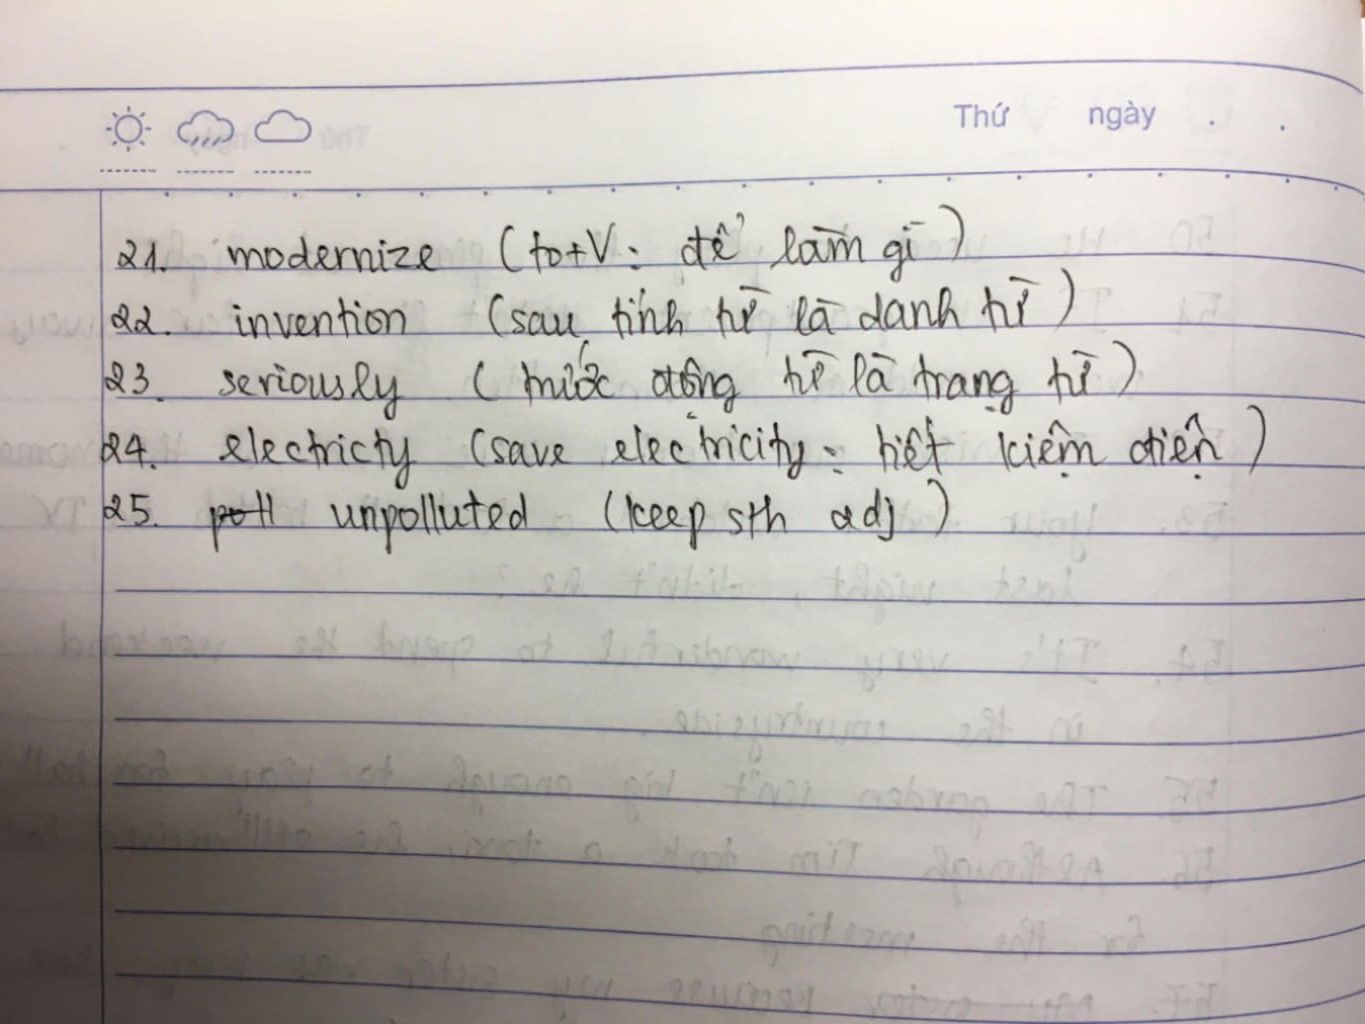 Thứ ngày . .
21. modernize (to+V: để làm gì)
22. invention (sau tính từ là danh từ)
23. seriously (trước động từ là trạng từ)
24. electricty (save electricity: tiết kiệm điện)
25. poll unpolluted (keep sth adj)